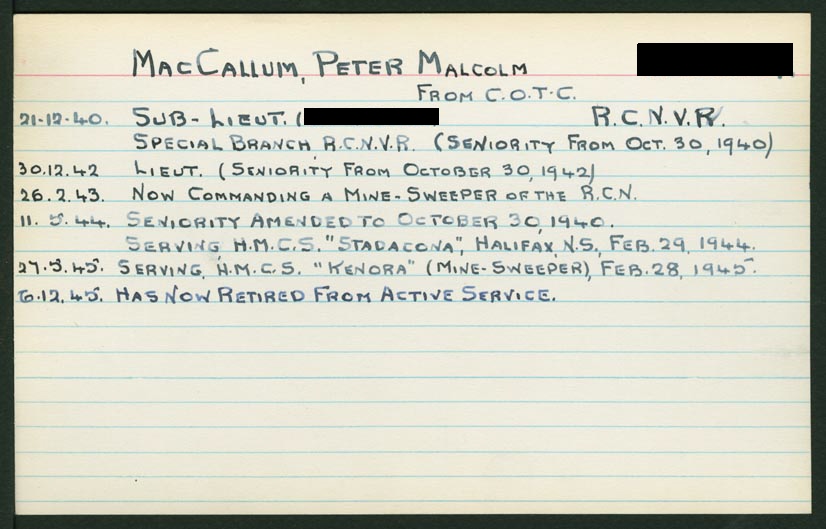 MACCALLUM, PETER MALCOLM
FROM C.O.T.C.
21-12-40. SUB-LIEUT. ( R.C.N.V.R.
SPECIAL BRANCH R.C.N.V.R. (SENIORITY FROM OCT. 30, 1940)
30.12.42 LIEUT. (SENIORITY FROM OCTOBER 30, 1942)
26.2.43. NOW COMMANDING A MINE-SWEEPER OF THE R.C.N.
11.5.44. SENIORITY AMENDED TO OCTOBER 30, 1940.
SERVING H.M.C.S. "STADACONA", HALIFAX, N.S., FEB. 29, 1944.
27.3.45. SERVING, H.M.C.S. "KENORA" (MINE-SWEEPER), FEB. 28, 1945.
6.12.45. HAS NOW RETIRED FROM ACTIVE SERVICE.